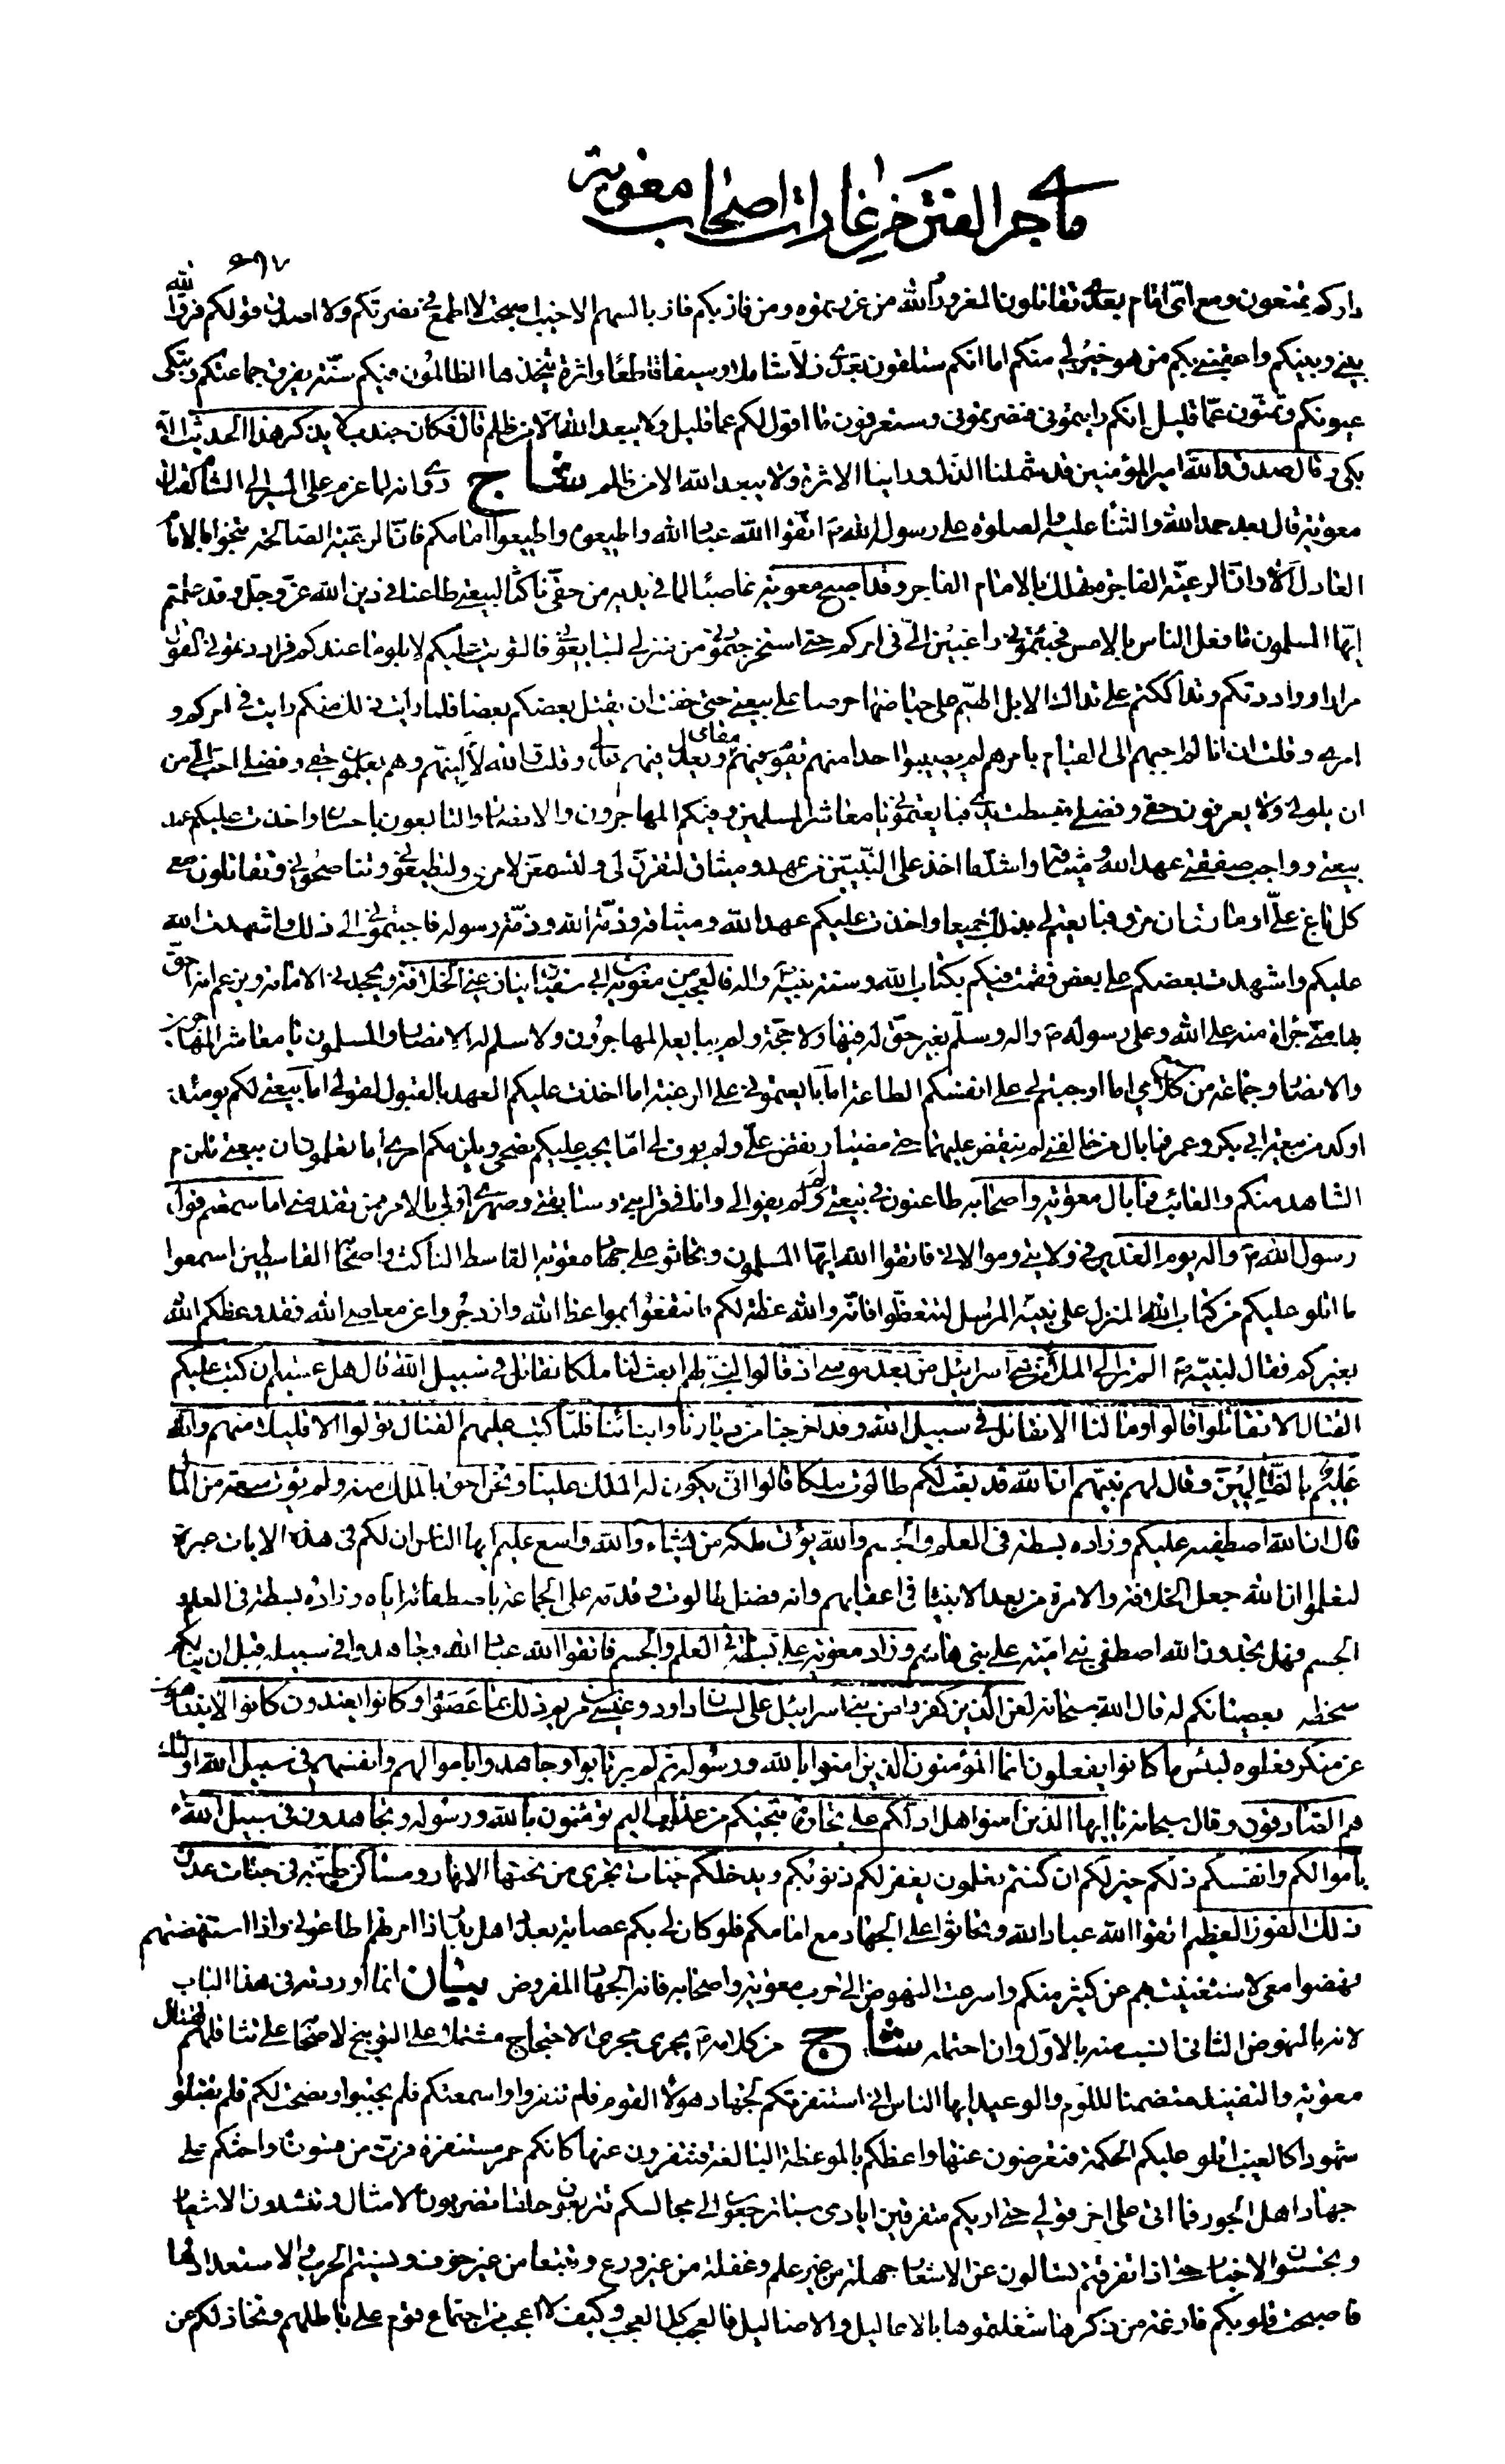 ما جرى من الفتن من غارات اصحاب معوية
٦٩٧
داركم تمنعون ومع اىّ امام بعدى تقاتلون المغرور والله من غررتموه ومن فاز بكم فاز بالسهم الاخيب اصبحت لا اطمع فى نصرتكم ولا اصدق قولكم فرق الله
بينى وبينكم واعقبنى بكم من هو خير لى منكم اما انكم ستلقون بعدى ذلّا شاملا وسيفا قاطعًا واثرة يتخذها الظالمون فيكم سنّة يفرق جماعتكم ويبكى
عيونكم وتمنّون عمّا قليل انكم رايتمونى فنصرتمونى وستعرفون ما اقول لكم عما قليل ولا يبعد الله الّا من ظلم قال فكان جندب لا يذكر هذا الحديث الّا
بكى وقال صدق والله امير المؤمنين قد شملنا الذل وراينا الاثرة ولا يبعد الله الا من ظلم شا ج روى انه لما عزم على المسير الى الشام لقتال
معوية قال بعد حمد الله والثناء عليه والصلوة على رسول الله ص اتّقوا الله عباد الله واطيعوه واطيعوا امامكم فانّ الرعيّة الصالحة تنجوا بالامام
العادل الا وانّ الرعيّة الفاجرة تهلك بالامام الفاجر وقد اصبح معوية غاصبًا لما فى يديه من حقّى ناكثًا لبيعتى طاعنا فى دين الله عزّ وجل وقد علمتم
ايّها المسلمون ما فعل الناس بالامس فجئتمونى راغبين الىّ فى امركم حتى استخرجتمونى من منزلى لتبايعونى فالتويت عليكم لابلو ما عندكم فراددتمونى القول
مرارا وراددتكم وتداككتم على تداكّ الابل الهيم على حياضها حرصا على بيعتى حتى خفت ان يقتل بعضكم بعضا فلما رايت ذلك منكم رايت فى امركم و
امرى وقلت ان انا لم اجبهم الى القيام بامرهم لم يصيبوا احدا منهم يقوم فيهم مقامى ويعدل فيهم عدلى وقلت والله لألينّهم وهم يعلمون حقى وفضلى احب الىّ من
ان يلونى ولا يعرفون حقى وفضلى فبسطت يدى فبايعتمونى يا معاشر المسلمين وفيكم المهاجرون والانصار والتابعون باحسان واخذت عليكم عهد
بيعتى وواجب صفقتى عهد الله وميثاقه واشدّ ما اخذ على النّبيّين من عهد وميثاق لتقرنّ لى ولتسمعنّ لامرى ولتطيعونى وتناصحونى وتقاتلون معى
كل باغ علىّ او مارق ان مرق فبايعتم لى بذلك جميعا واخذت عليكم عهد الله وميثاقه وذمّة الله وذمّة رسوله فاجبتمونى الى ذلك واشهدت الله
عليكم واشهدت بعضكم على بعض فقمت فيكم بكتاب الله وسنة نبيّه ص واله فالعجب من معوية بن ابى سفيان ينازعنى الخلافة ويجحدنى الامامة ويزعم انه احقّ
بها منّى جراة منه على الله وعلى رسوله ص واله وسلّم بغير حقّ له فيها ولا حجّة ولم يبايعه المهاجرون ولا سلم له الانصار والمسلمون يا معاشر المهاجرين
والانصار وجماعة من سمع كلامى اما اوجبتم لى على انفسكم الطاعة اما بايعتمونى على الرغبة اما اخذت عليكم العهد بالقبول لقولى اما بيعتى لكم يومئذ
اوكد من بيعة ابى بكر وعمر فما بال من خالفنى لم ينقض عليهما حتى مضيا ونقض علىّ ولم يوف لى امّا يجب عليكم نصحى ويلزمكم امرى اما تعلمون ان بيعتى تلزم
الشاهد منكم والغائب فما بال معوية واصحابه طاعنون فى بيعتى ولم لم يفوا لى وانا فى قرابتى وسابقتى وصهرى اولى بالامر ممن تقدمنى اما سمعتم قول
رسول الله ص واله يوم الغدير فى ولايتى وموالاتى فاتقوا الله ايّها المسلمون وتحاثوا على جهاد معوية القاسط الناكث واصحابه القاسطين اسمعوا
ما اتلو عليكم من كتاب الله المنزل على نبيّه المرسل لتتعظوا فانّه والله عظة لكم فانتفعوا بمواعظ الله وازدجروا عن معاصى الله فقد وعظكم الله
بغيركم فقال لنبيّه ص الم تر الى الملأ من بنى اسرائيل من بعد موسى اذ قالوا لنبى لهم ابعث لنا ملكا نقاتل فى سبيل الله قال هل عسيتم ان كتب عليكم
القتال الا تقاتلوا قالوا وما لنا الا نقاتل فى سبيل الله وقد اخرجنا من ديارنا وابنائنا فلمّا كتب عليهم القتال تولوا الا قليلا منهم والله
عليم بالظّالمين وقال لهم نبيّهم ان الله قد بعث لكم طالوت ملكا قالوا انّى يكون له الملك علينا ونحن احق بالملك منه ولم يؤت سعة من المال
قال ان الله اصطفيه عليكم وزاده بسطة فى العلم والجسم والله يؤتى ملكه من يشاء والله واسع عليم ايها الناس ان لكم فى هذه الايات عبرة
لتعلموا ان الله جعل الخلافة والامرة من بعد الانبياء فى اعقابهم وانه فضل طالوت وقدّمه على الجماعة باصطفائه اياه وزاده بسطة فى العلم و
الجسم فهل تجدون الله اصطفى بنى اميّة على بنى هاشم وزاد معوية علىّ بسطة فى العلم والجسم فاتقوا الله عباد الله وجاهدوا فى سبيله قبل ان ينالكم
سخطه بعصيانكم له قال الله سبحانه لعن الّذين كفروا من بنى اسرائيل على لسان داود وعيسى بن مريم ذلك بما عصوا وكانوا يعتدون كانوا لا يتناهون
عن منكر فعلوه لبئس ما كانوا يفعلون انما المؤمنون الذين امنوا بالله ورسوله ثم لم يرتابوا وجاهدوا باموالهم وانفسهم فى سبيل الله اولئك
هم الصّادقون وقال سبحانه يا ايها الذين امنوا هل ادلّكم على تجارة تنجيكم من عذاب اليم تؤمنون بالله ورسوله وتجاهدون فى سبيل الله
باموالكم وانفسكم ذلكم خير لكم ان كنتم تعلمون يغفر لكم ذنوبكم ويدخلكم جنات تجرى من تحتها الانهار ومساكن طيّبة فى جنّات عدن
ذلك الفوز العظيم اتقوا الله عباد الله وتحاثوا على الجهاد مع امامكم فلو كان لى بكم عصابة بعدد اهل بدر اذا امرتهم اطاعونى واذا استنهضتهم
نهضوا معى لاستغنيت بهم عن كثير منكم واسرعت النهوض الى حرب معوية واصحابه فانه الجهاد المفروض بيان انما اوردته فى هذا الباب
لانه بالنهوض الثانى انسب منه بالاوّل وان احتمله شا، ج من كلامه ع يجرى مجرى الاحتجاج مشتملا على التوبيخ لاصحابه على تثاقلهم لقتال
معوية والتفنيد متضمنا لللوم والوعيد ايها الناس انى استنفرتكم لجهاد هؤلاء القوم فلم تنفروا واسمعتكم فلم تجيبوا ونصحت لكم فلم تقبلوا
شهودا كالغيب اتلو عليكم الحكمة فتعرضون عنها واعظكم بالموعظة البالغة فتنفرون عنها كانكم حمر مستنفرة فرت من قسورة واحثكم على
جهاد اهل الجور فما اتى على اخر قولى حتى اريكم متفرقين ايادى سبا ترجعون الى مجالسكم تتربعون حلقا تضربون الامثال وتنشدون الاشعار
وتجسسون الاخبار حتى اذا تفرقتم تسالون عن الاشعار جهلة من غير علم وغفلة من غير ورع وتتبعا من غير خوف ونسيتم الحرب والاستعداد لها
فاصبحت قلوبكم فارغة من ذكرها شغلتموها بالاعاليل والاضاليل فالعجب كل العجب وكيف لا اعجب من اجتماع قوم على باطلهم وتخاذلكم عن